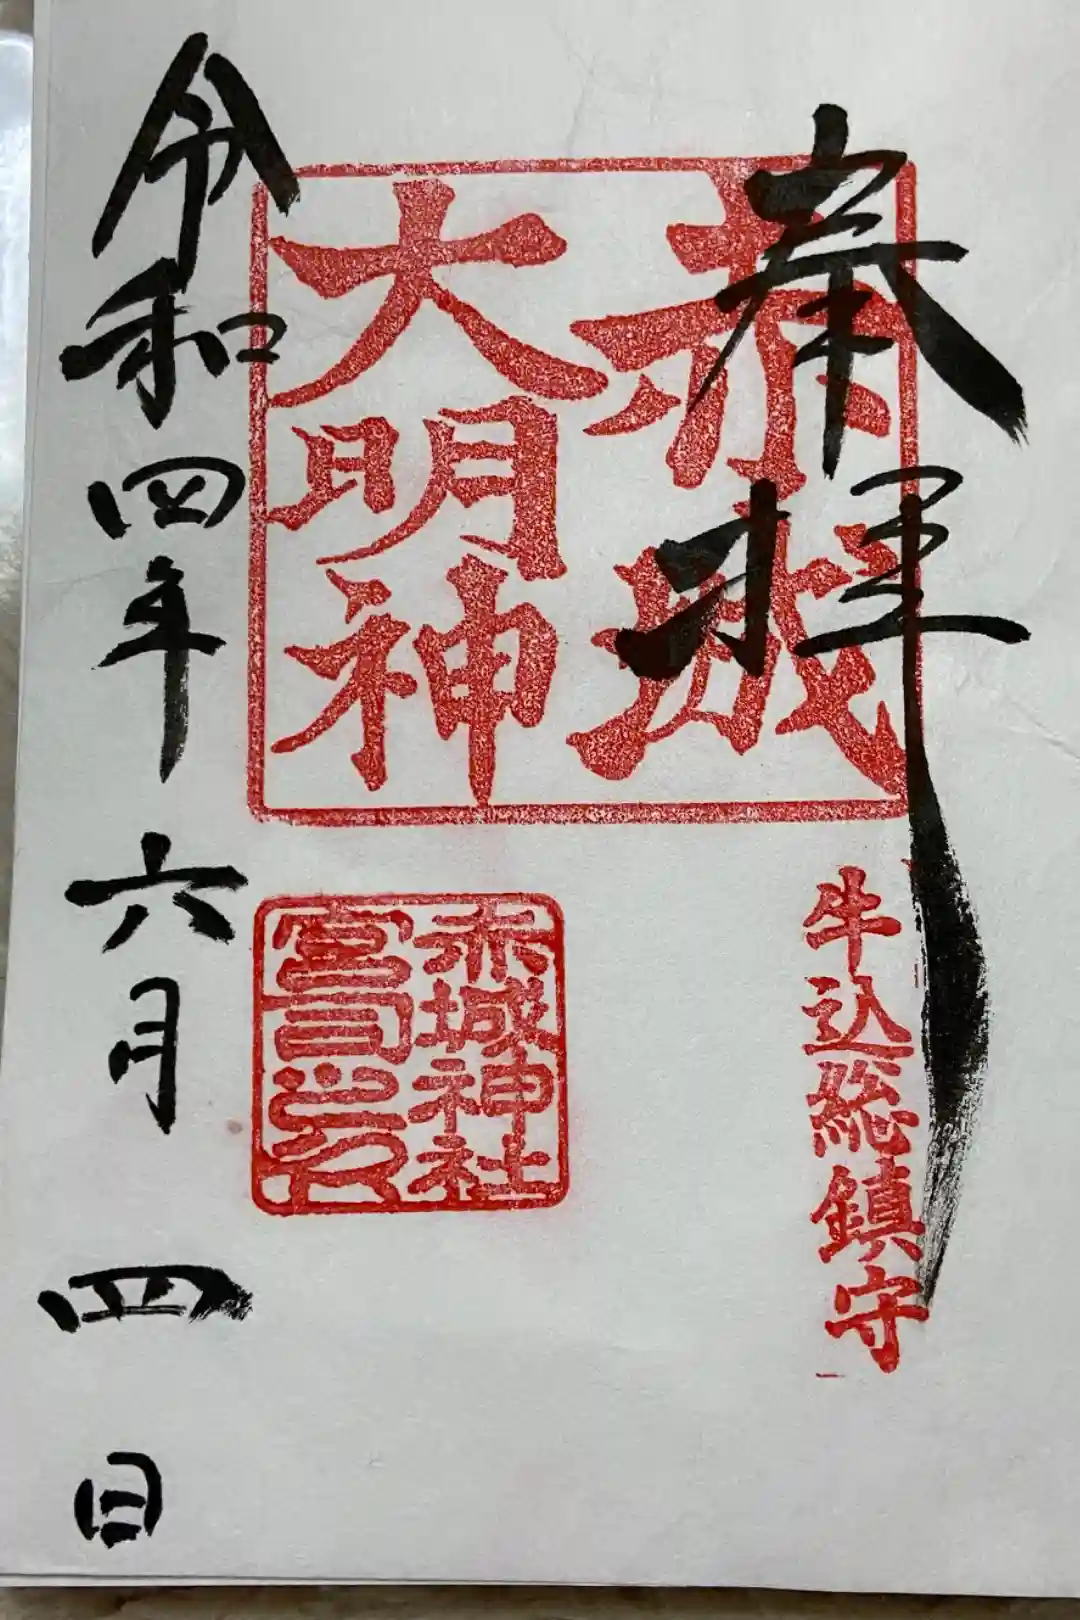 奉拝
赤城
大明神
牛込総鎮守
赤城神社
宮司之印
令和四年六月四日